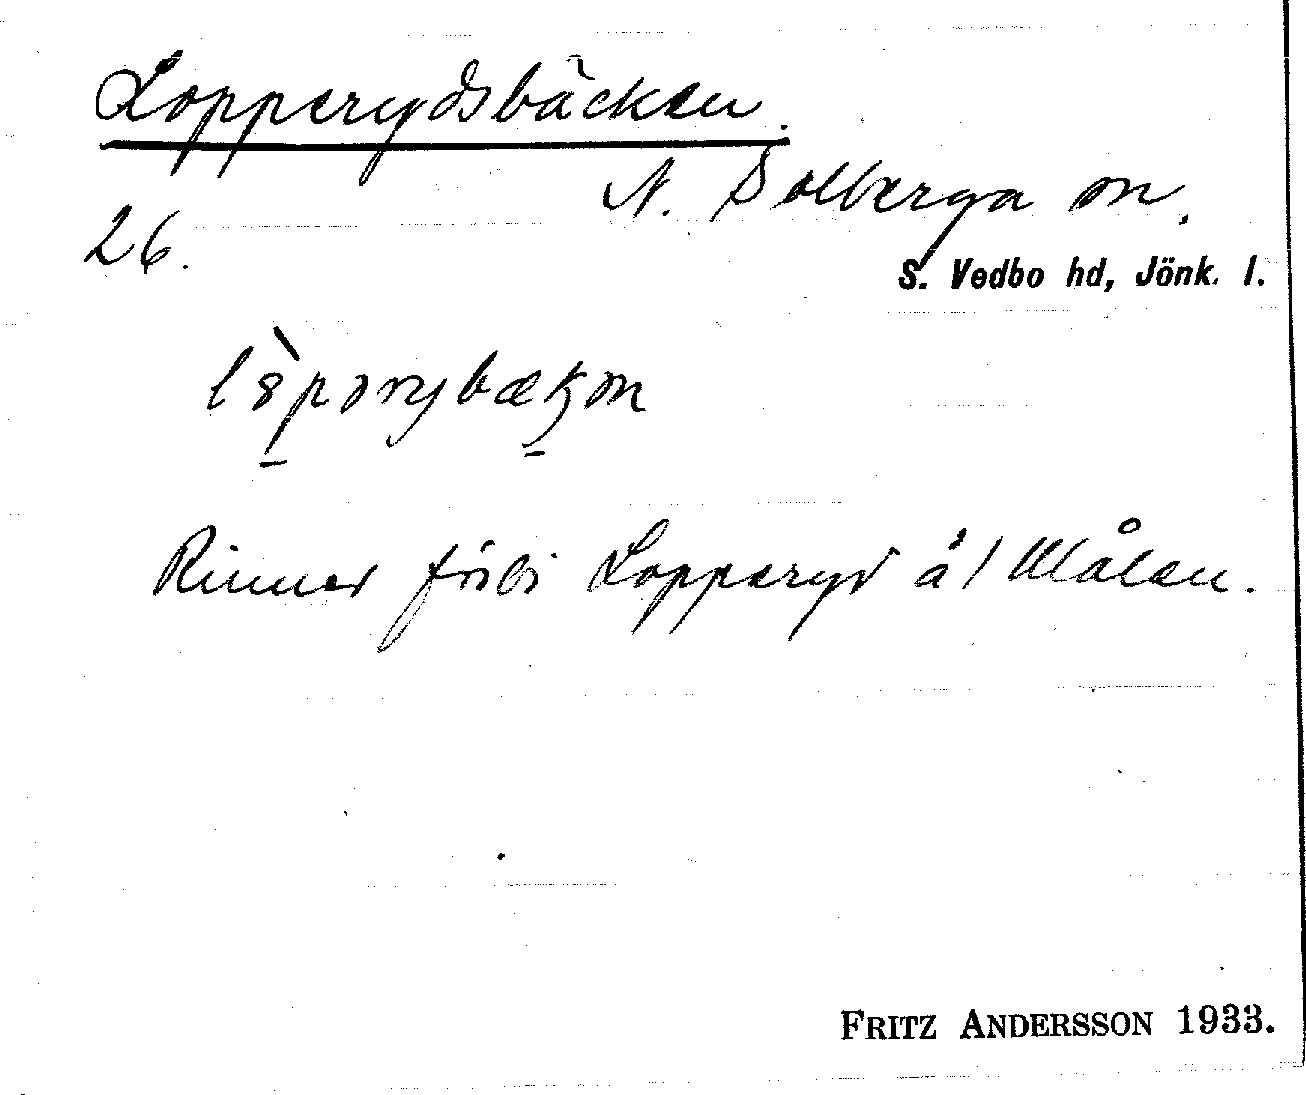 Lopperydsbäcken.
N. Solberga sn.
26.
S. Vedbo hd, Jönk. l.
Rinner förbi Lopperyd å 1 Målen.
FRITZ ANDERSSON 1933.